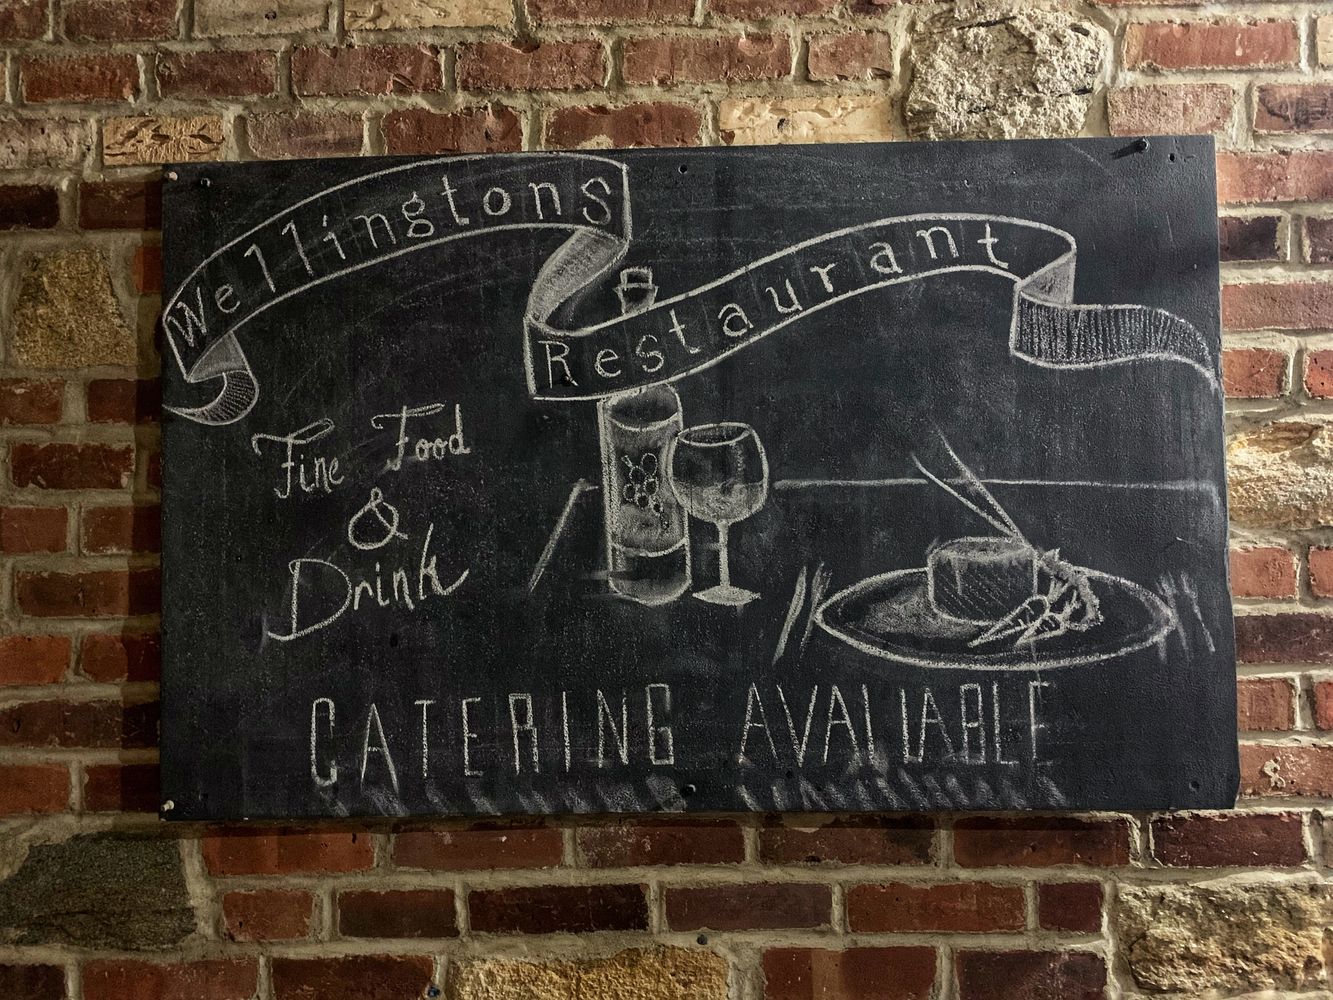 Wellingtons
Restaurant
Fine Food
&
Drink
CATERING AVALIABLE